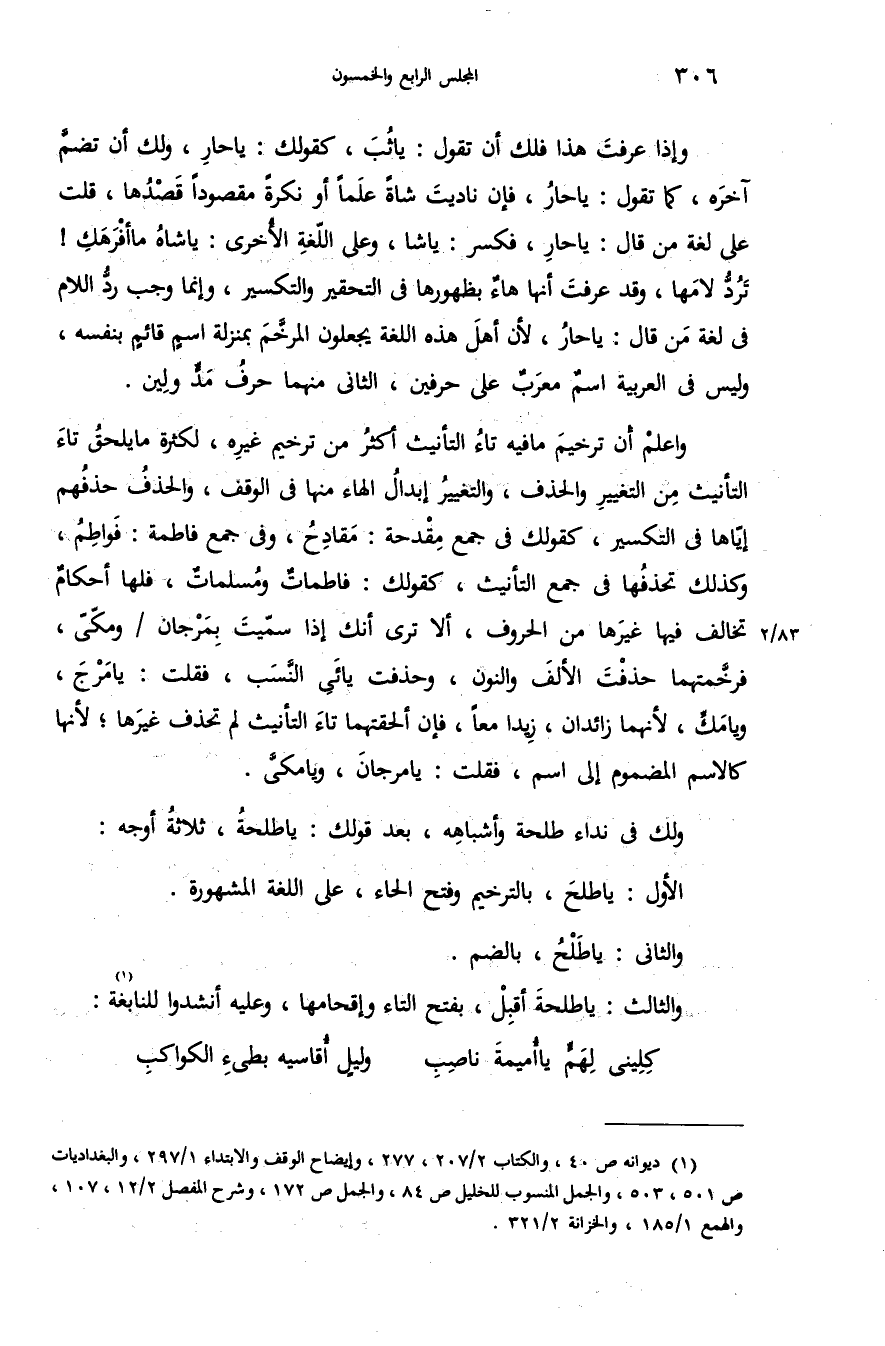 ٣٠٦ المجلس الرابع والخمسون
وإذا عرفتَ هذا فلك أن تقول : ياثُبَ ، كقولك : ياحارِ ، ولك أن تضمَّ
آخرَه ، كما تقول : ياحارُ ، فإن ناديتَ شاةً علَماً أو نكرةً مقصوداً قَصْدُها ، قلت
على لغة من قال : ياحارِ ، فكسر : ياشا ، وعلى اللّغةِ الأُخرى : ياشاهُ ماأفْرَهَكِ !
تَرُدُّ لامَها ، وقد عرفتَ أنها هاءٌ بظهورها فى التحقير والتكسير ، وإنما وجب ردُّ اللام
فى لغة مَن قال : ياحارُ ، لأن أهلَ هذه اللغة يجعلون المرخَّمَ بمنزلة اسمٍ قائمٍ بنفسه ،
وليس فى العربية اسمٌ معرَبٌ على حرفين ، الثانى منهما حرفُ مَدٍّ ولِين .
واعلمْ أن ترخيمَ مافيه تاءُ التأنيث أكثرُ من ترخيم غيرِه ، لكثرة مايلحقُ تاءَ
التأنيث مِن التغييرِ والحذف ، والتغييرُ إبدالُ الهاء منها فى الوقف ، والحذفُ حذفُهم
إيّاها فى التكسير ، كقولك فى جمع مِقْدحة : مَقادِحُ ، وفى جمع فاطمة : فَواطِمُ ،
وكذلك تحذفُها فى جمع التأنيث ، كقولك : فاطماتٌ ومُسلماتٌ ، فلها أحكامٌ
تخالف فيها غيرَها من الحروف ، ألا ترى أنك إذا سمّيتَ بِمَرْجان / ومكّىّ ، ٢/٨٣
فرخَّمتهما حذفْتَ الألفَ والنون ، وحذفت يائَىِ النَّسَب ، فقلت : يامَرْجَ ،
ويامَكِّ ، لأنهما زائدان ، زِيدا معاً ، فإن ألحقتهما تاءَ التأنيث لم تحذف غيرَها ؛ لأنها
كالاسم المضموم إلى اسم ، فقلت : يامرجانَ ، ويامكىَّ .
ولك فى نداء طلحة وأشباهِه ، بعد قولك : ياطلحةُ ، ثلاثةُ أوجه :
الأول : ياطلحَ ، بالترخيم وفتح الحاء ، على اللغة المشهورة .
والثانى : ياطَلْحُ ، بالضم .
والثالث : ياطلحةَ أقبِلْ ، بفتح التاء وإقحامها ، وعليه أنشدوا للنابغة (١) :
كِلِينى لِهَمٍّ ياأُميمةَ ناصِبِ وليلٍ أُقاسيه بطىءِ الكواكبِ
(١) ديوانه ص ٤٠ ، والكتاب ٢٠٧/٢ ، ٢٧٧ ، وإيضاح الوقف والابتداء ٢٩٧/١ ، والبغداديات
ص ٥٠١ ، ٥٠٣ ، والجمل المنسوب للخليل ص ٨٤ ، والجمل ص ١٧٢ ، وشرح المفصل ١٢/٢ ، ١٠٧ ،
والهمع ١٨٥/١ ، والخزانة ٣٢١/٢ .